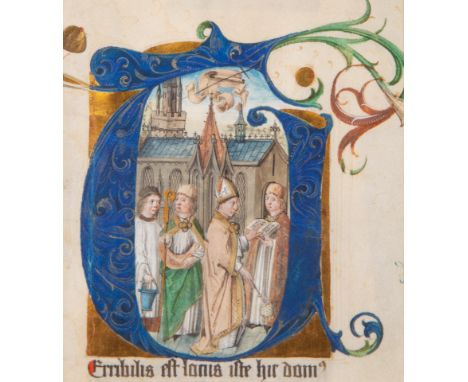 TErribilis eſt locus iſte hic domꝰ